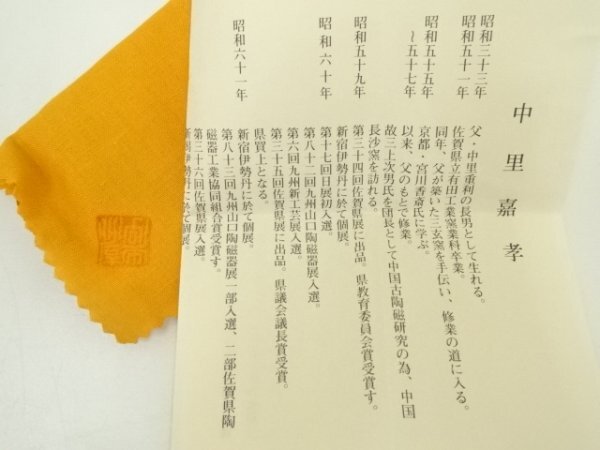 中里嘉孝
昭和三十三年 父・中里重利の長男として生れる。
昭和五十一年 佐賀県立有田工業窯業科卒業。
同年、父が築いた三玄窯を手伝い、修業の道に入る。
昭和五十五年 京都・宮川香斎氏に学ぶ。
〜五十七年 以来、父のもとで修業。
故三上次男氏を団長として中国古陶磁研究の為、中国
長沙窯を訪れる。
昭和五十九年 第三十四回佐賀県展に出品。県教育委員会賞受賞す。
新宿伊勢丹に於て個展。
昭和六十年 第十七回日展初入選。
第八十二回九州山口陶磁器展入選。
第六回九州新工芸展入選。
第三十五回佐賀県展に出品。県議会議長賞受賞。
県買上となる。
昭和六十一年 新宿伊勢丹に於て個展。
第八十三回九州山口陶磁器展一部入選、二部佐賀県陶
磁器工業協同組合賞受賞す。
第三十六回佐賀県展入選。
新宿伊勢丹に於て個展。